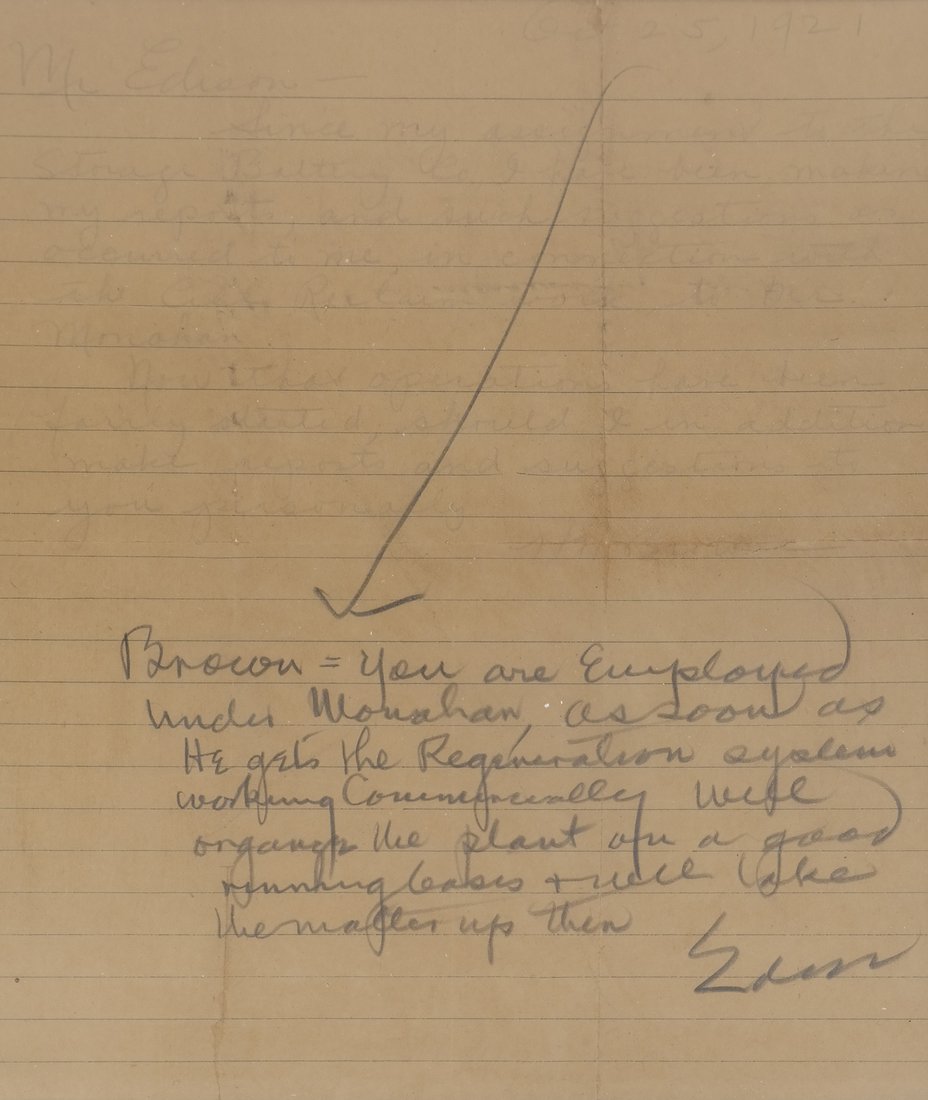 Oct 25, 1921
Mr Edison —
Since my assignment to the
Storage Battery Co, I have been making
my reports, and such suggestions as
occurred to me, in connection with
the Reclaim work to Mr.
Monahan.
Now that operations have been
fairly started, should I in addition
make reports and suggestions to
you personally
Brown = you are Employed
under Monahan, as soon as
He gets the Regeneration system
working Commercially will
organize the plant on a good
running basis + will take
the matter up then
Edison